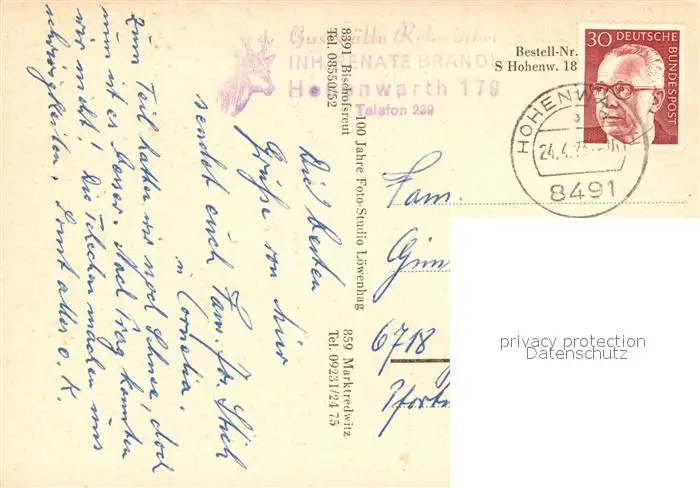 Gaststätte
INH. RENATE BRANDL
Hohenwarth 179
Telefon 239
8391 Bischofsreut
Tel. 08550/52
100 Jahre Foto-Studio Löwenhag
859 Marktredwitz
Tel. 09231/24 75
Bestell-Nr.
S Hohenw. 18
30 DEUTSCHE
BUNDESPOST
HOHENWARTH
24.4.
8491
Die besten
Grüße von hier
sendet euch Fam.
u. Cornelia.
Zum Teil hatten wir noch Schnee, doch
nun ist es besser. Nach Prag konnten
wir nicht! Die Tschechen machen uns
schwierigkeiten. Sonst alles o.K.
Fam.
6718
privacy protection
Datenschutz